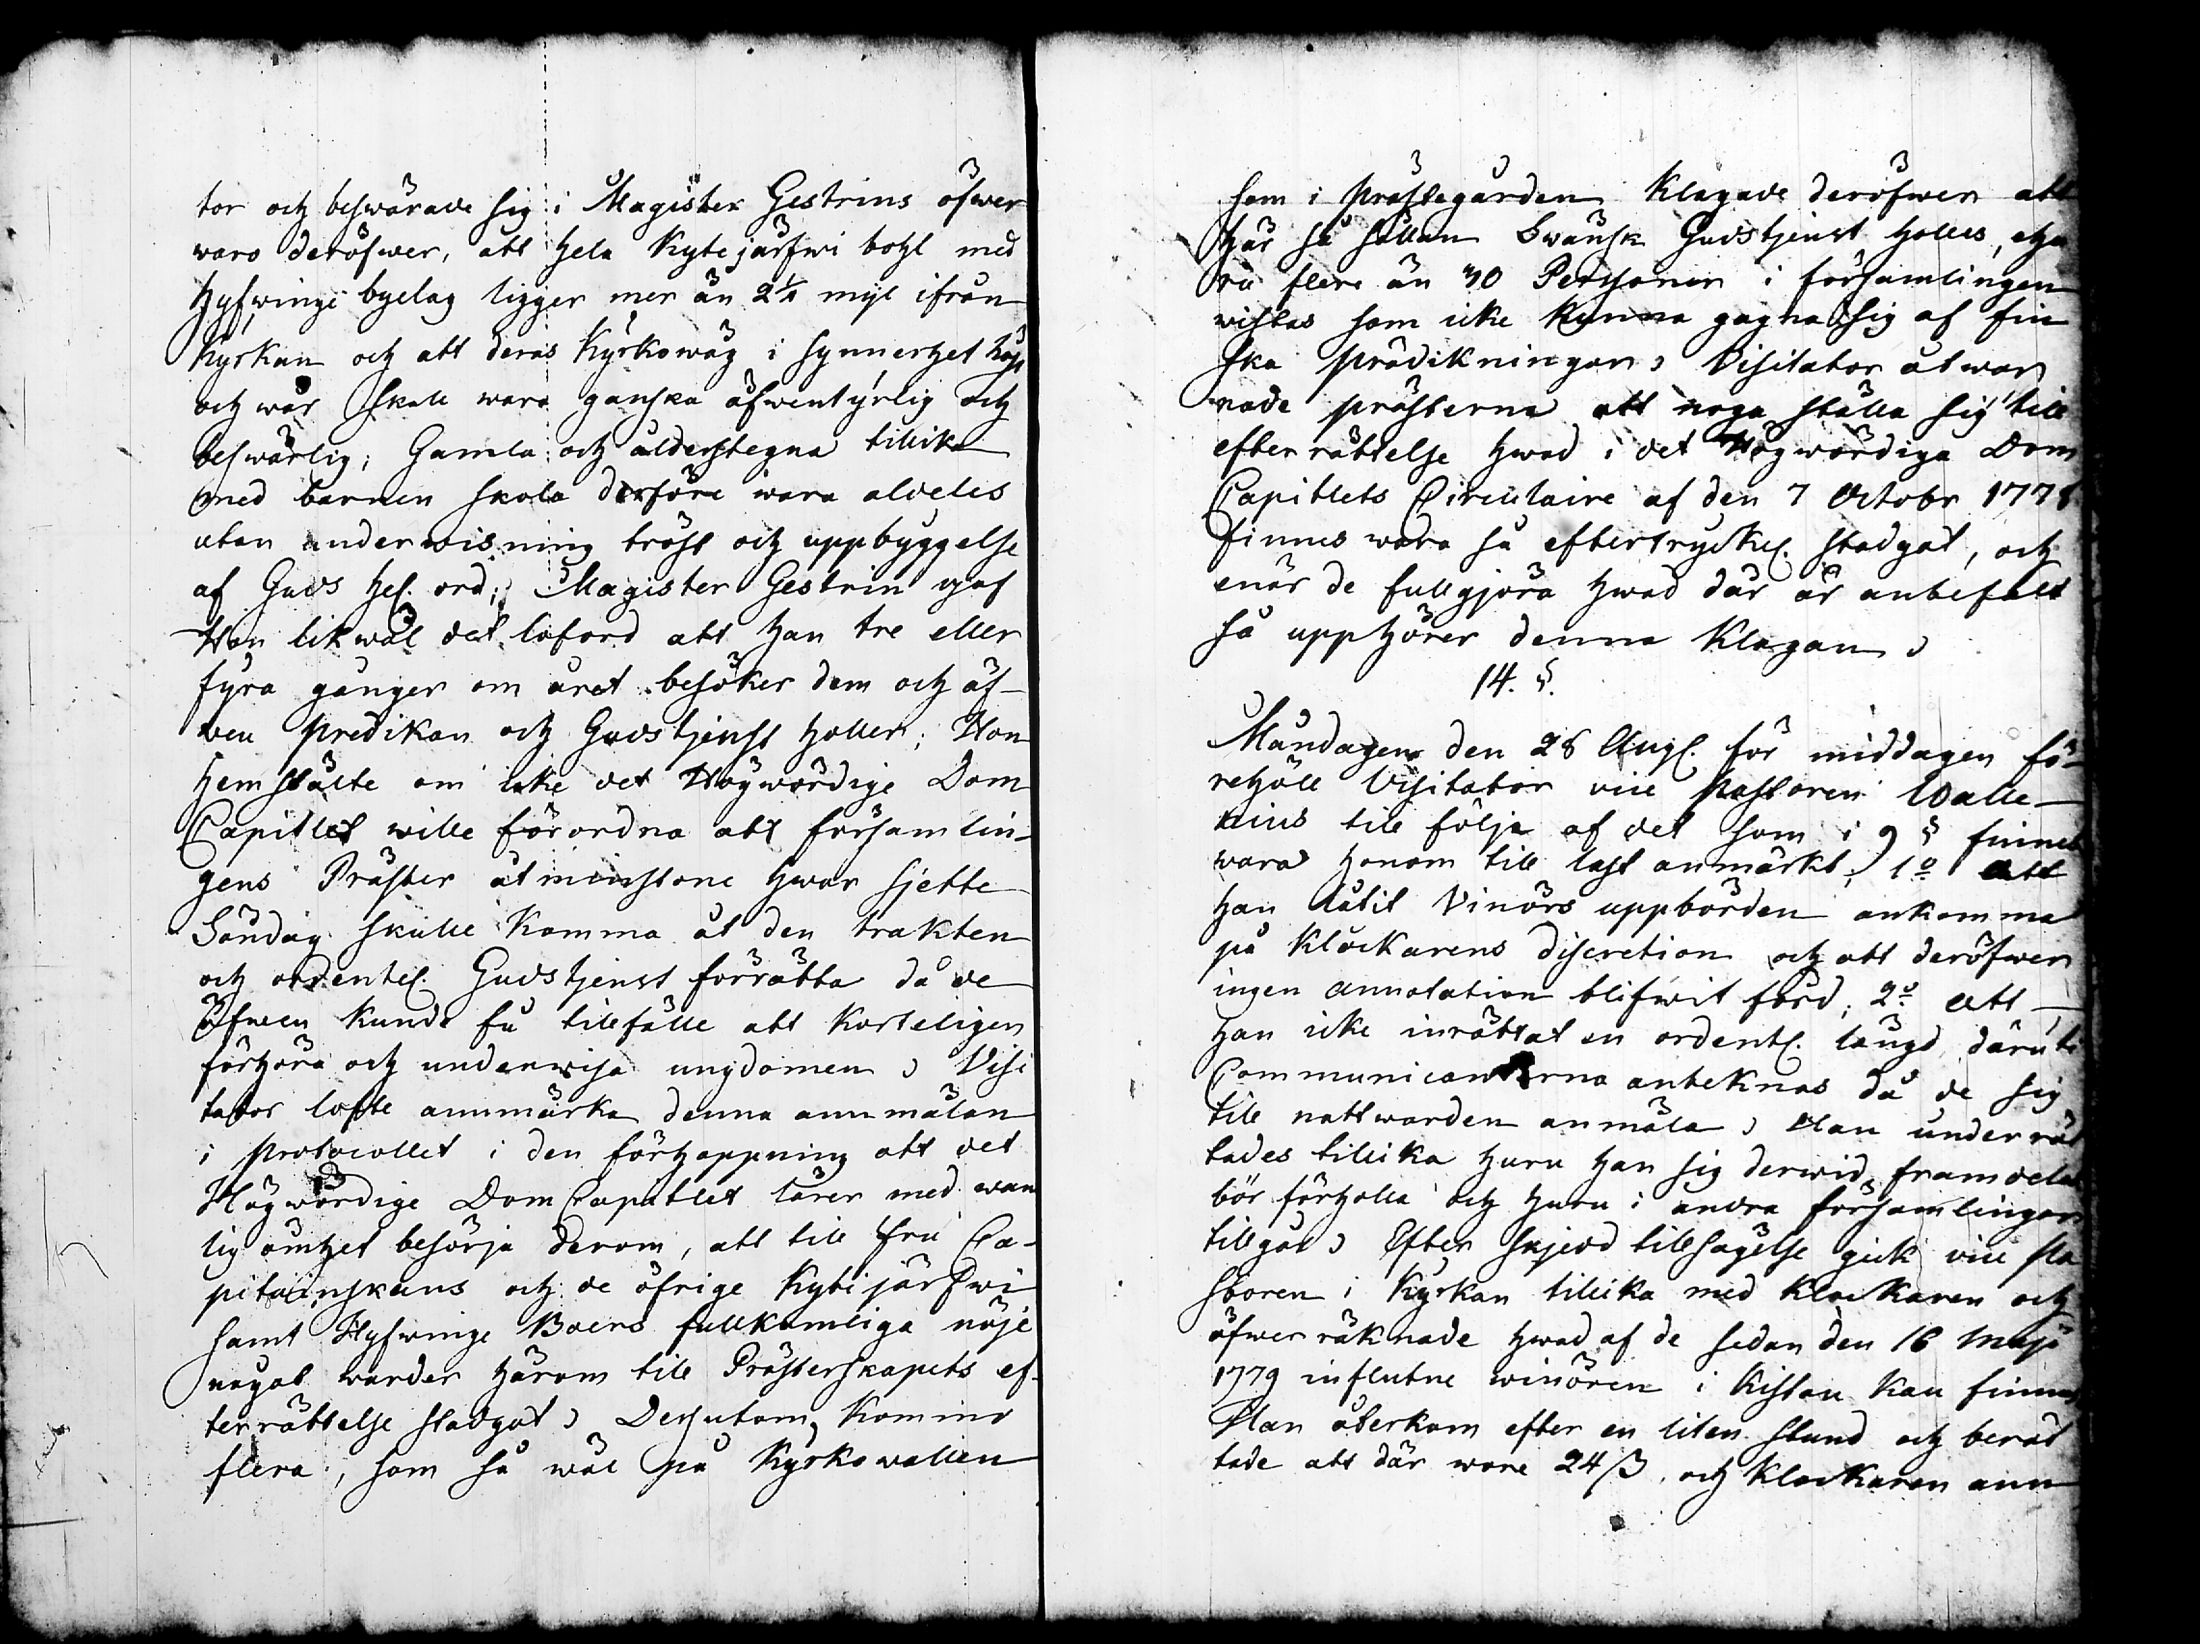 tor och beswärade sig i Magister Gestrins öfwer
waro deröfwer, att hela Kytejärfwi bohl med
Hyfwinge byelag ligger mer än 2 1/4 myl ifrån
Kyrkan och att deras Kyrkowäg i synnerhet höst
och wår skall wara ganska äfwentyrlig och
beswärlig; Gamla och ålderstegna tillika
med barnen skola derföre wara aldeles
utan underwisning tröst och uppbyggelse
af Guds hel. ord; Magister Gestrin gaf
Hon likwäl det loford att han tre eller
fyra gånger om året besöker dem och äf-
wen Predikan och Gudstjenst håller; Hon
hemstälte om icke det Högwördige Dom
Capitlet wille förordna att församlin-
gens Präster åtminstone hwar sjette
Söndag skulle komma åt den trakten
och ordentel. Gudstjenst förrätta då de
äfwen kunde få tillfälle att korteligen
förhöra och underwisa ungdomen. Visi
tator lofte annmärka denna annmälan
i Protocollet i den förhoppning att det
Högwördige Dom Capitlet lärer med wan
lig ömhet besörja derom, att till fru Ca-
pitainskans och de öfrige Kytejärfwi
samt Hyfwinge Boers fullkomliga nöje
något warder härom till Prästerskapets ef-
terrättelse stadgat. Dessutom kommo
flera, som så wäl på Kyrkowallen
som i Prästegården klagade deröfwer att
här så sällan Swänsk Gudstjenst hålles, eha
ru flere än 30 Personer i församlingen
wistas som icke kunna gagna sig af fin
ska prädikningar. Visitator åtwar
nade prästerna att noga ställa sig till
efterrättelse hwad i det Högwördiga Dom
Capitlets Circulaire af den 7 Octobr 1778
finnes wara så eftertryckel. stadgat, och
enär de fullgjöra hwad där är anbefalt
så upphörer denna klagan.
14. §.
Måndagen den 28 Aug. för middagen fö-
rehöll Visitator vice Pastoren Walle-
nius till följe af det som i 9 § finnes
wara honom till last anmärkt; 1o att
han låtit Vinörs uppbörden ankomma
på Klockarens discretion och att deröfwer
ingen annotation blifwit förd; 2o att
han icke inrättat en ordentl. längd däruti
Communicanterna anteknas då de sig
till nattwarden anmäla. Han underrät
tades tillika huru han sig derwid framdeles
bör förhålla och huru i andra församlingar
tillgår. Efter skjedd tillsägelse gick vice Pa
storen i Kyrkan tillika med Klockaren och
öfwerräknade hwad af de sedan den 16 Maji
1779 influtne winören i kistan kan finnas
Han återkom efter en liten stund och berät
tade att där wore 24 ß, och Klockaren ann